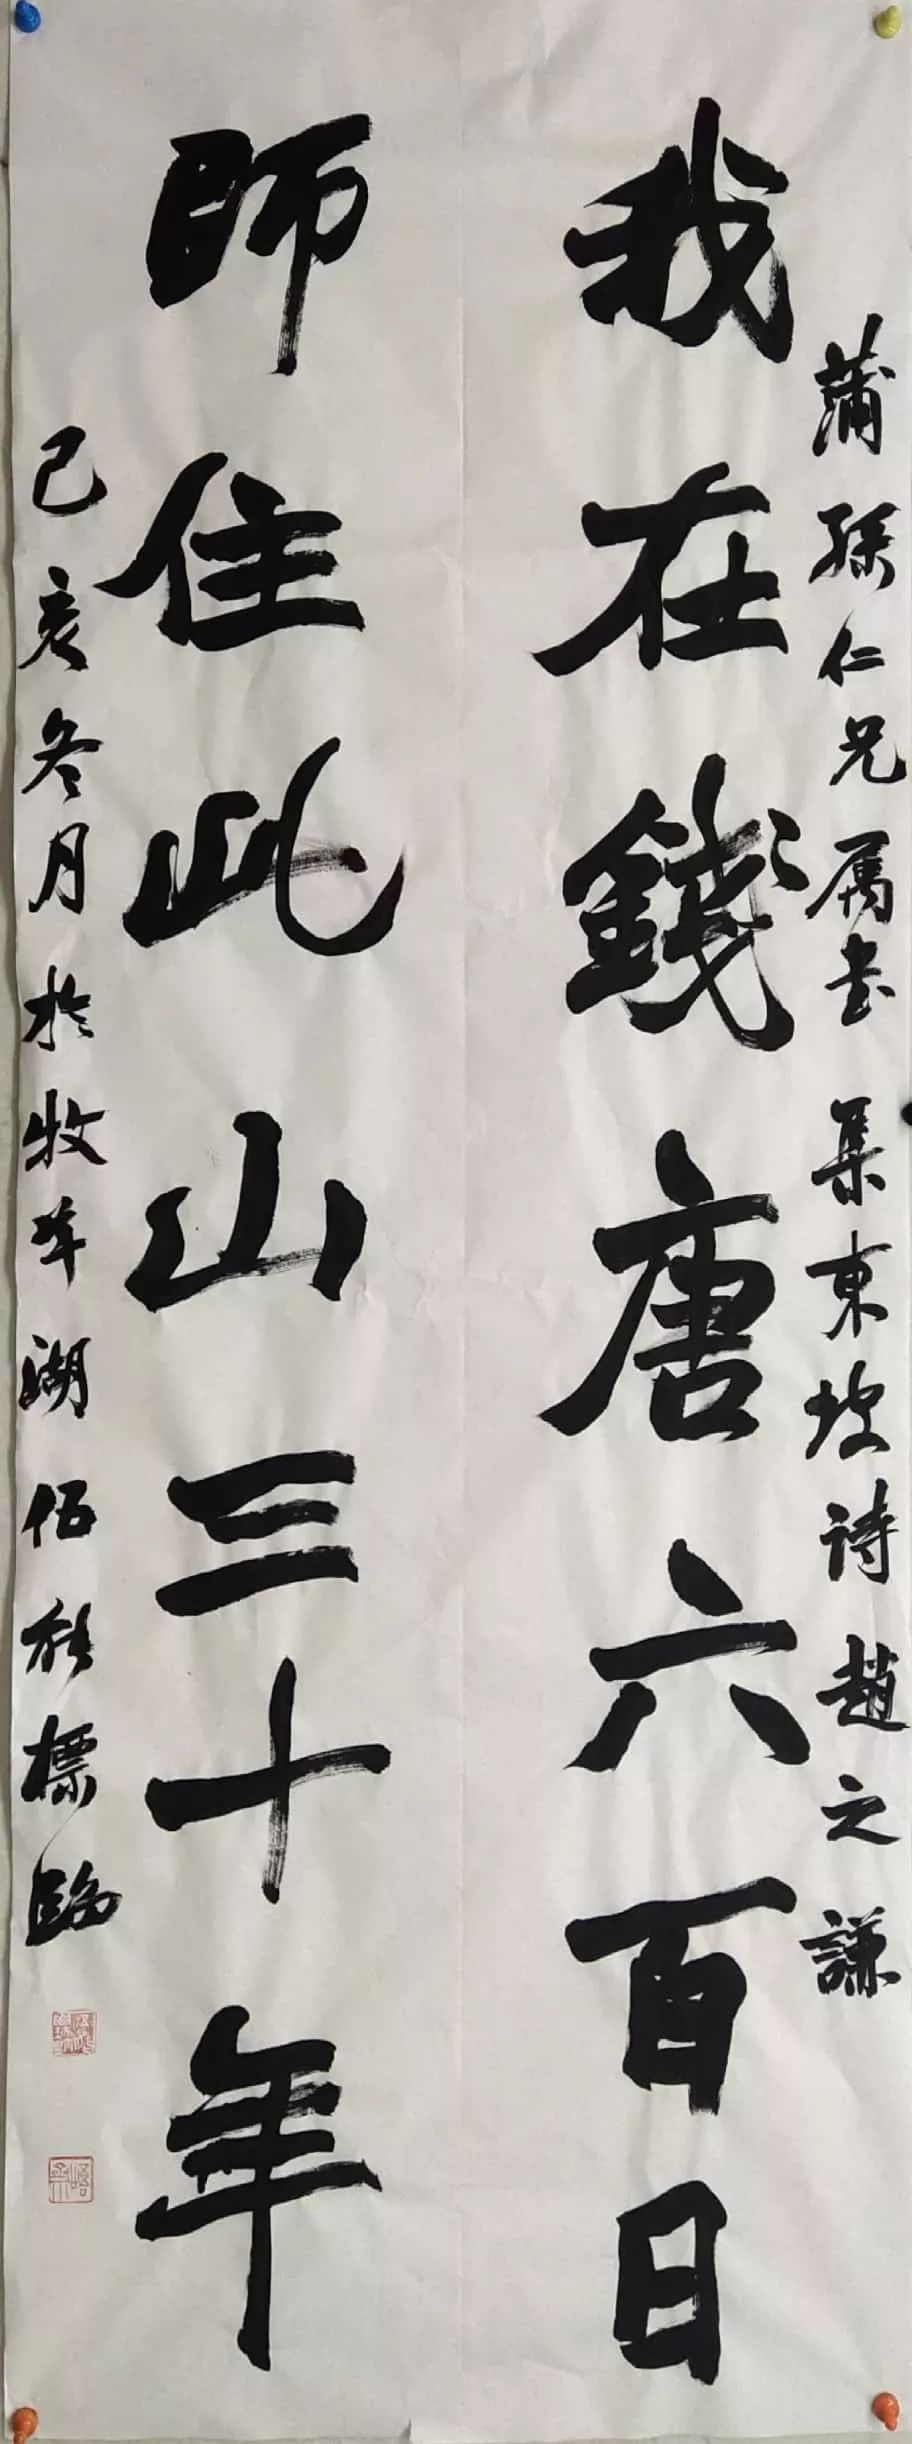 蒲孫仁兄属书 集東坡诗 趙之謙
我在錢唐六百日
師住此山三十年
己亥冬月於牧羊湖伍秋標臨